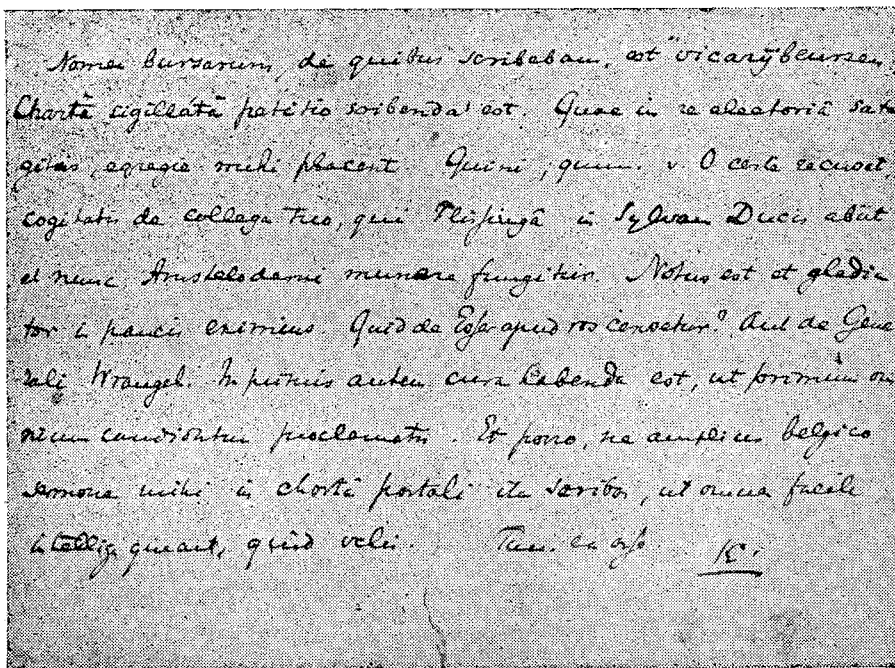 Nomen bursarum, de quibus scribebam, est "vicarÿbeurzen".
Chartâ sigillatâ petitio scribenda est. Quae in re electoriâ sat
gitas, egregie mihi placent. Quini, quum v. O certe recuset,
cogitatis de collega tuo, qui Flissingâ in Sylvam Ducis abiit
et nunc Amstelodami munere fungitur. Notus est et gladia
tor in paucis eximius. Quid de Esser apud vos censetur? Aut de Gene
rali Wrangel. In primis autem cura habenda est, ut primum om
nium candidatum proclametis. Et porro, ne amplius belgico
sermone mihi in chartâ postali ita scribas, ut omnes facile
intelligi queant, quid velis. K.